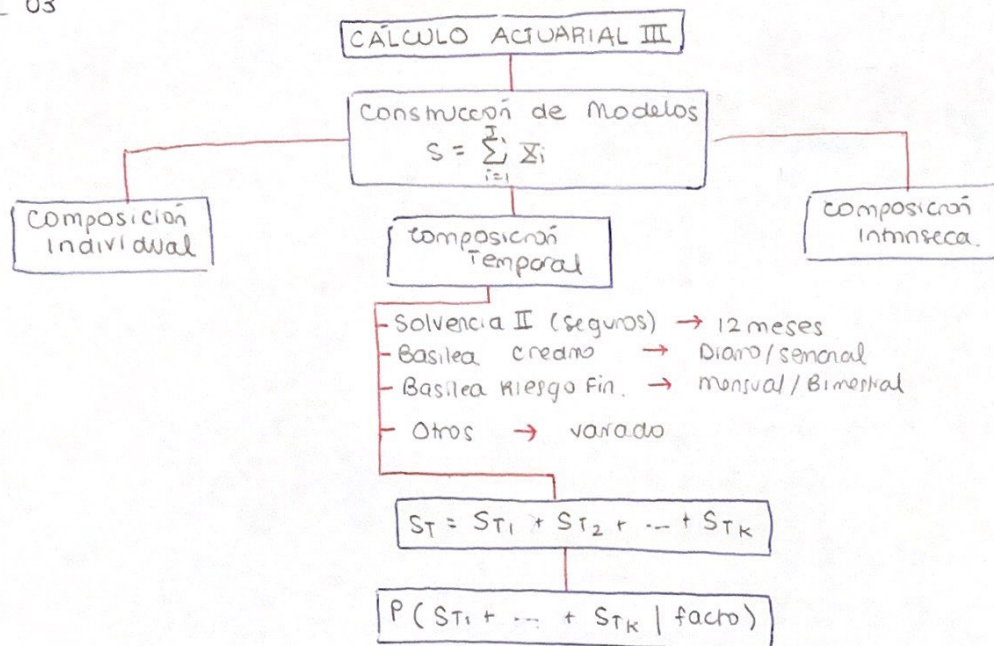 03
CÁLCULO ACTUARIAL III
Construcción de Modelos
S = Σ_{i=1}^{I} Xi
Composición
Individual
Composición
Temporal
Composición
Intrínseca.
Solvencia II (seguros) → 12 meses
Basilea credito → Diario/semanal
Basilea Riesgo Fin. → mensual/Bimestral
Otros → variado
S_T = S_T1 + S_T2 + --- + S_TK
P(S_T1 + --- + S_TK | facto)